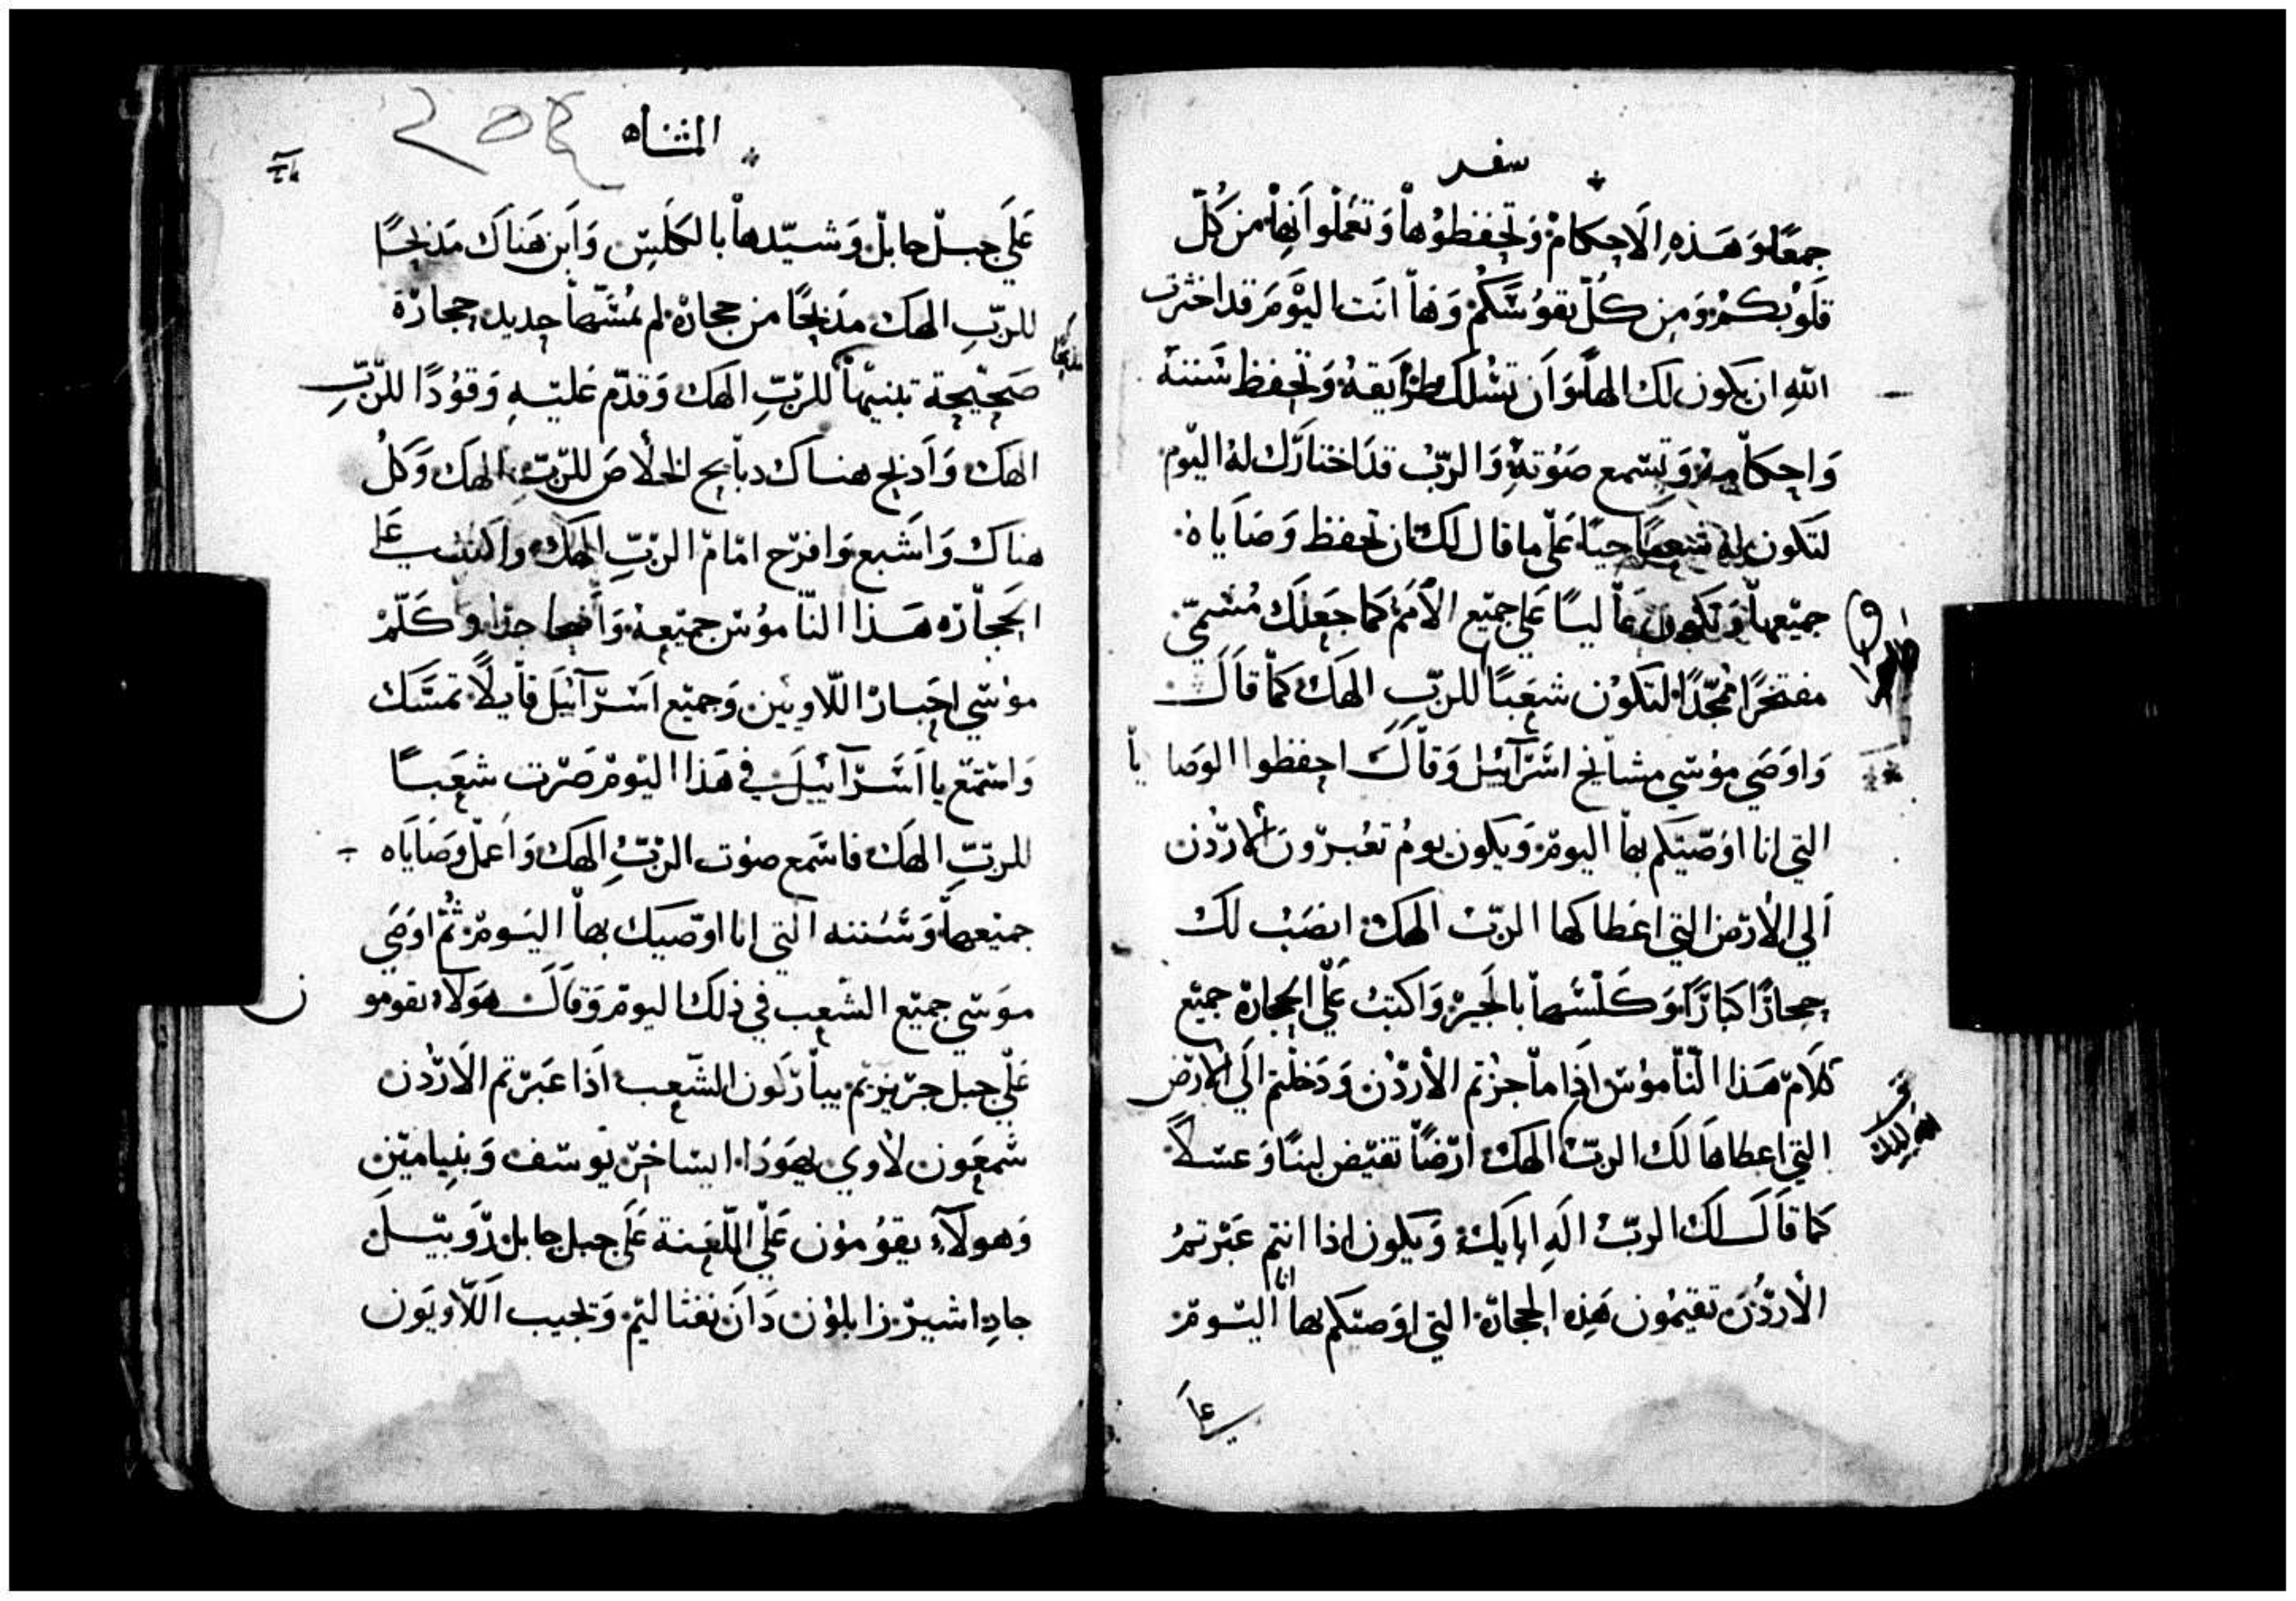 سفر
جمعًا وَهَذهِ الَاحكامْ وَتحفظوُهاْ وَتعَملْوا بِهاْ من كُلّ
قلَوْبكمْ وَمِن كُلّ نفوُسَكُمْ وَهاْ انَت اليْوَمَ قد اخترت
اللهِ ان يكون لك الهاً وَاَن تسْلك طرْايقهُ وَتحفظ سَننهْ
وَاحكاْمهُ وَتسَمع صَوُتهْ وَالربّ قدَ اختارَك لهُ اليْوم
لتَكون لهُ شعباً حياً عَلْى ما قال لك ان تحفظ وَصَاياهُ
جميْعهاْ وَتكون عَاْليًا عَلى جميْع الاُمَم كما جَعلَك مُسْمىّ
مفتخرًا ممجّدًا لتكوْن شعبًا للربّ الهك كماْ قاَلَ
وَاوَصَى موْسى مشايْخ اسَرْآئيل وَقاْلَ احفظوا الوَصايا
التى انا اوَصّيَكم بهاْ اليومْ وَيكون يومُ تعُبرْون الارْدُن
اَلى الاْرْض التى اعْطاكها الربُّ الهكْ انصَبْ لك
حجارًا كبارًا وَكَلْسَهاْ بالجَيرْ وَاكتبْ عَلْى الحجارة جميْع
كلاَمْ هَذا الْنّاموُسْ اذِا ماْ جزُتم الاْردْن وَدَخلْتم الَى الارْض
التى اعطاهَا لَك الربُّ الهكْ ارْضًا تفيْض لبنًا وَعسَلاً
كما قاَلَ لك الربُّ الَهِ ابايك وَيكون اذا انتم عَبْرتمُ
الاْردُنَ تقيمُون هَذِهِ الحجارةْ التى انا اوَصيَكم بهاْ اليَومْ
عل
المثناه
عَلَى جبلْ جابلْ وَشيّدهاْ بالكلسِ وَاَبن هَناَك مَذبحًا
للربِّ الهك مذبحًا من حجارةْ لم يمُسَّهاْ حديد حجارْة
صَحيْحة تبنيْهاْ للربّ الهك وَقدّم عَليْهِ وَقوُدًا للرّبّ
الهكْ وَاَذبح هناك دباْيح الخلْاصَ للربّ الهك وَكلُ
هناك وَاَشبع وَافرْح امَامْ الربِّ الهك واكتب عَلى
الحَجاْرْه هَذا النّاموُسْ جميْعهُ وَاَضحا جدًا وَكَلّمْ
موْسَى احَبارْ اللّاويين وَجميْع اسَرْآئيَل قاْيلاً تمسَّك
وَاسَتمَع يا اَسَرْآئيَل فى هَذا اليْومْ صَرْت شعَباً
للربِّ الهك فاسَمع صوْت الرّبِّ الهك وَاَعملْ وَصَاياَه
جميْعهاْ وَسَننه التى انا اوَصّيك بهاْ اليَومْ ثُمّ اوَصَى
موَسَى جميْع الشّعِب فى ذلك اليومْ وَقاَلَ هَوَلاء يقومو
عَلْى جبل جرْيزيْم يباْرْكون الشّعِب اذَا عَبرْتم الاَرْدُن
شمعَون لاْوى يهوَذا ايسَاخرْ يوْسَف وَبنيامينْ
وَهولآءِ يقوُموْن عَلْى اللّعَنة عَلَى جبل جابل رْوَبيَل
جادِ اشيرْ زابلوُن دَاَن نفثاليْم وَتجيب اَللْاويَون